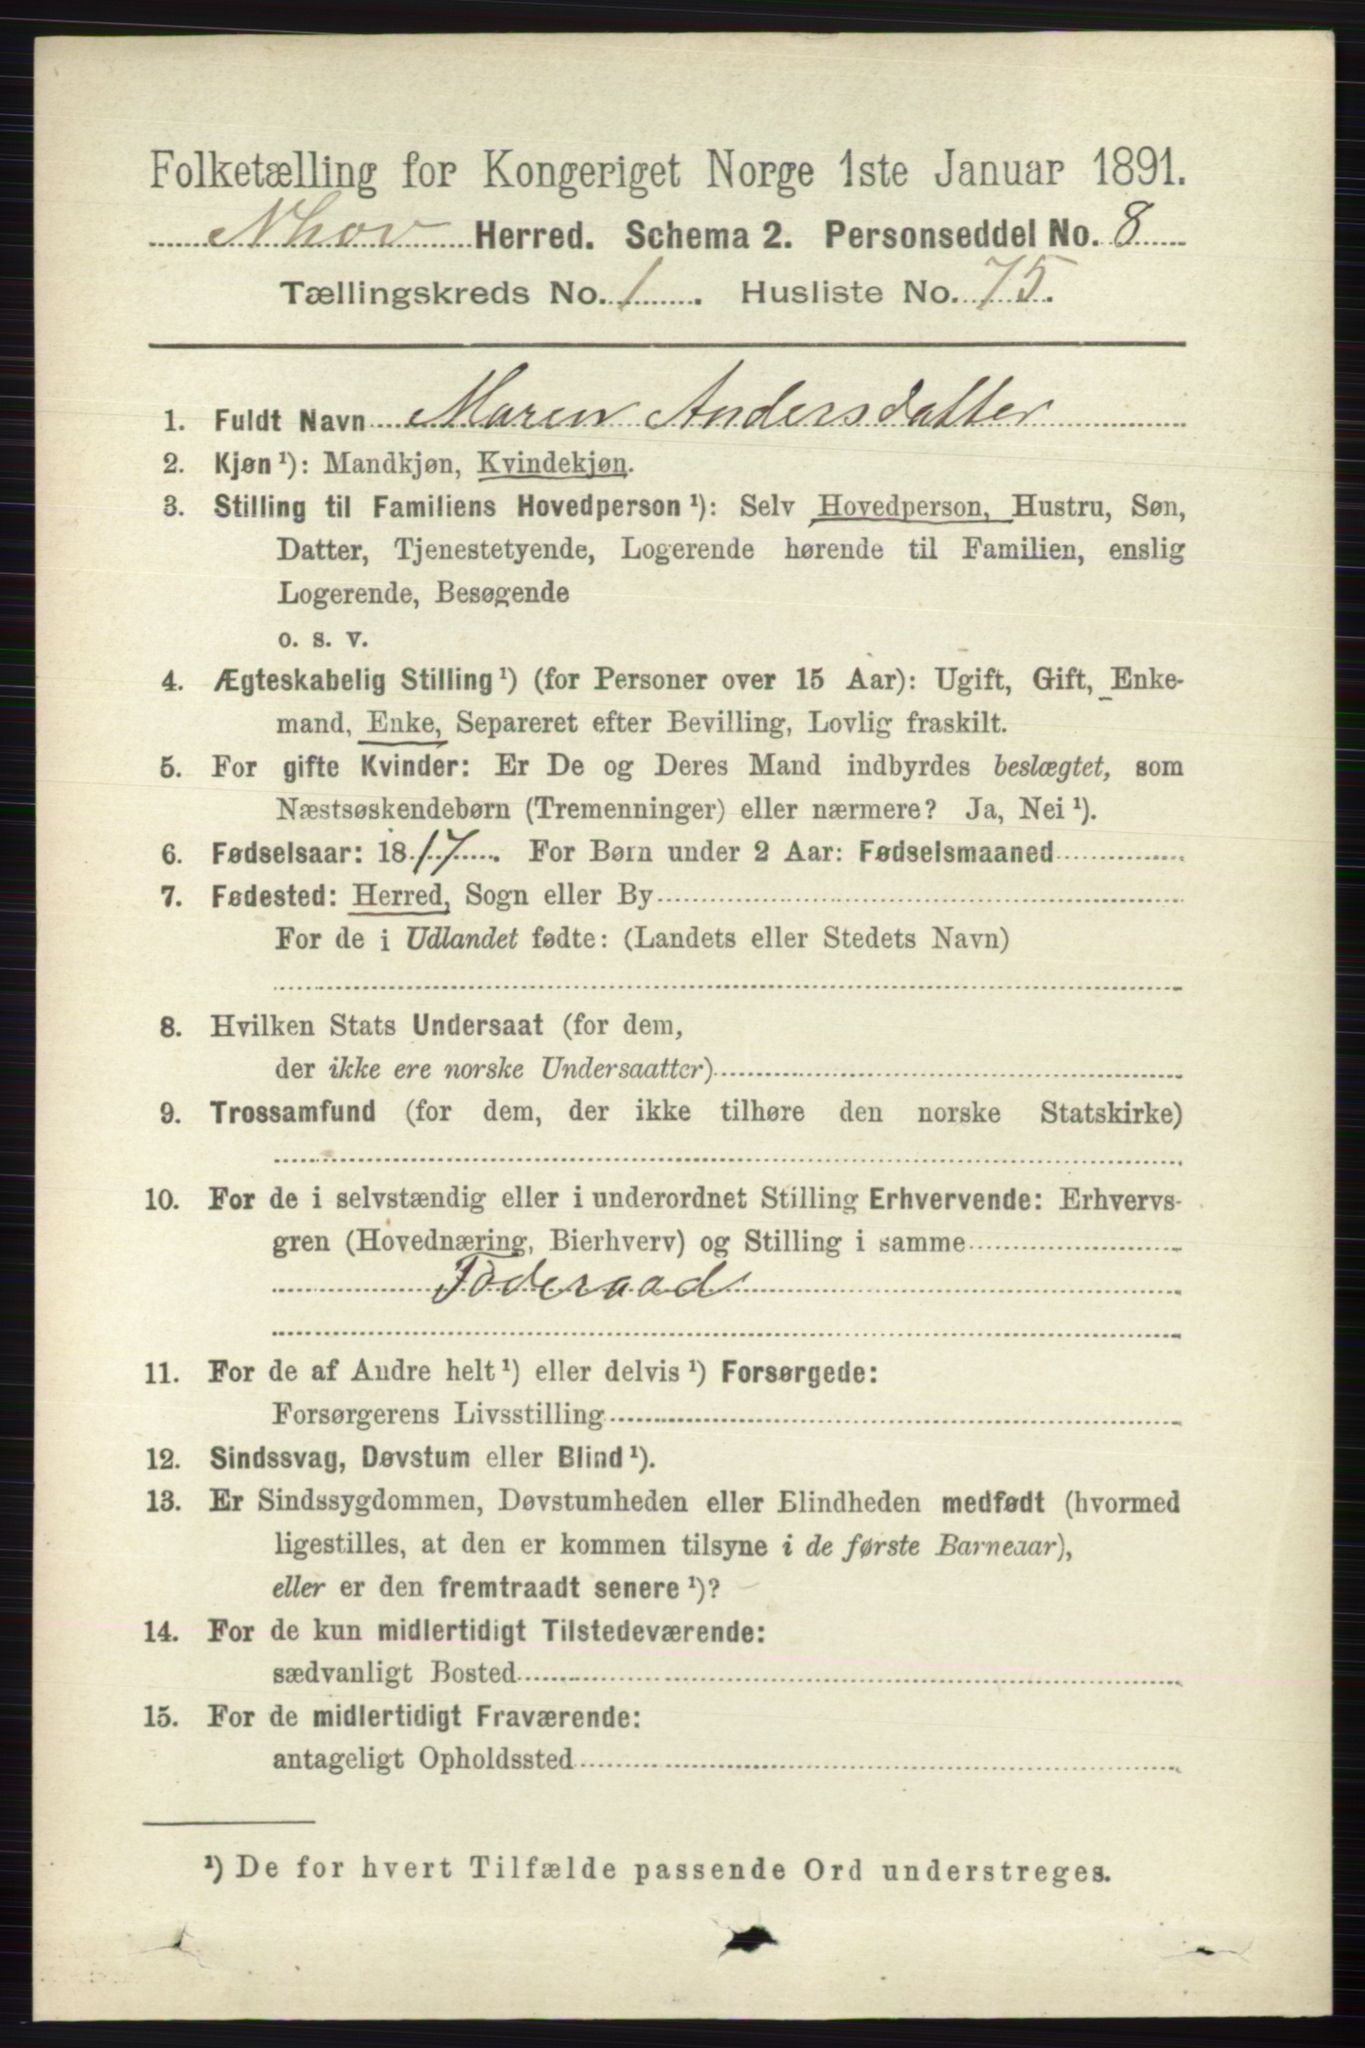 Folketælling for Kongeriget Norge 1ste Januar 1891.
Nhov Herred. Schema 2. Personseddel No. 8
Tællingskreds No. 1. Husliste No. 75.
1. Fuldt Navn Maren Andersdatter
2. Kjøn ¹): Mandkjøn, Kvindekjøn.
3. Stilling til Familiens Hovedperson ¹): Selv Hovedperson, Hustru, Søn,
Datter, Tjenestetyende, Logerende hørende til Familien, enslig
Logerende, Besøgende
o. s. v.
4. Ægteskabelig Stilling ¹) (for Personer over 15 Aar): Ugift, Gift, Enke-
mand, Enke, Separeret efter Bevilling, Lovlig fraskilt.
5. For gifte Kvinder: Er De og Deres Mand indbyrdes beslægtet, som
Næstsøskendebørn (Tremenninger) eller nærmere? Ja, Nei ¹).
6. Fødselsaar: 1817. For Børn under 2 Aar: Fødselsmaaned
7. Fødested: Herred, Sogn eller By
For de i Udlandet fødte: (Landets eller Stedets Navn)
8. Hvilken Stats Undersaat (for dem,
der ikke ere norske Undersaatter)
9. Trossamfund (for dem, der ikke tilhøre den norske Statskirke)
10. For de i selvstændig eller i underordnet Stilling Erhvervende: Erhvervs-
gren (Hovednæring, Bierhverv) og Stilling i samme
Føderaad
11. For de af Andre helt ¹) eller delvis ¹) Forsørgede:
Forsørgerens Livsstilling
12. Sindssvag, Døvstum eller Blind ¹).
13. Er Sindssygdommen, Døvstumheden eller Blindheden medfødt (hvormed
ligestilles, at den er kommen tilsyne i de første Barneaar),
eller er den fremtraadt senere ¹)?
14. For de kun midlertidigt Tilstedeværende:
sædvanligt Bosted
15. For de midlertidigt Fraværende:
antageligt Opholdssted
¹) De for hvert Tilfælde passende Ord understreges.